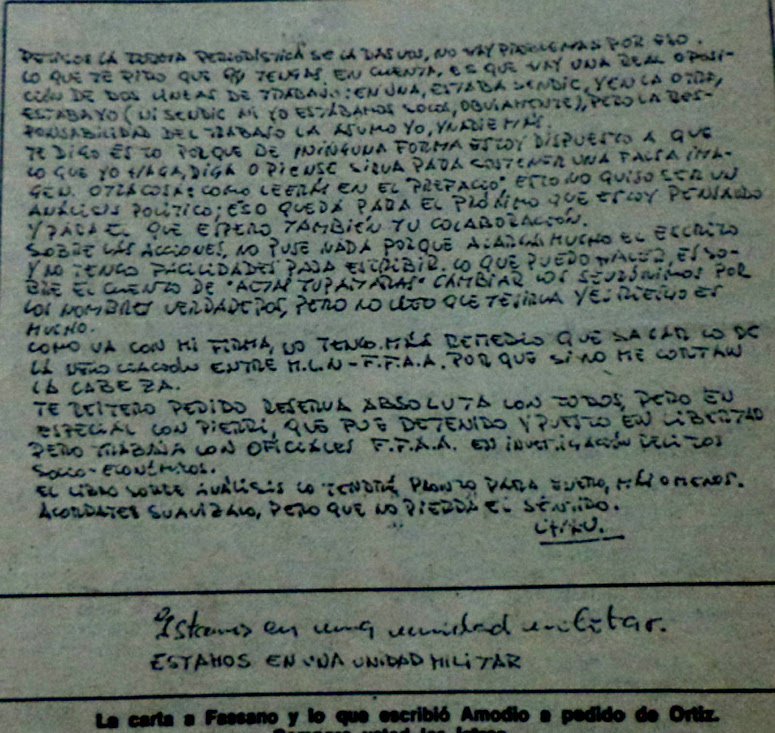 LA FORMA PERIODÍSTICA SE LA DAS VOS, NO HAY PROBLEMAS POR ESO.
LO QUE TE PIDO QUE TENGAS EN CUENTA, ES QUE HAY UNA REAL OPOSI-
CIÓN DE DOS LÍNEAS DE TRABAJO: EN UNA, ESTABA SENDIC, Y EN LA OTRA,
ESTABA YO (NI SENDIC NI YO ESTÁBAMOS SOLOS, OBVIAMENTE), PERO LA RES-
PONSABILIDAD DEL TRABAJO LA ASUMO YO, Y NADIE MÁS.
TE DIGO ESTO PORQUE DE NINGUNA FORMA ESTOY DISPUESTO A QUE
LO QUE YO HAGA, DIGA O PIENSE SIRVA PARA SOSTENER UNA FALSA IMA-
GEN. OTRA COSA: COMO LEERÁS EN EL "PREFACIO", ESTO NO QUISO SER UN
ANÁLISIS POLÍTICO; ESO QUEDA PARA EL PRÓXIMO QUE ESTOY PENSANDO
Y PARA EL QUE ESPERO TAMBIÉN TU COLABORACIÓN.
SOBRE LAS ACCIONES, NO PUSE NADA PORQUE ALARGA MUCHO EL ESCRITO
Y NO TENGO FACILIDADES PARA ESCRIBIR. LO QUE PUEDO HACER, ES SO-
BRE EL CUENTO DE "ACTAS TUPAMARAS" CAMBIAR LOS SEUDÓNIMOS POR
LOS NOMBRES VERDADEROS, PERO NO CREO QUE TE SIRVA Y EL RIESGO ES
MUCHO.
COMO VA CON MI FIRMA, NO TENGO MÁS REMEDIO QUE SACAR LO DE
LA NEGOCIACIÓN ENTRE M.L.N - F.F.A.A. PORQUE SI NO ME CORTAN
LA CABEZA.
TE REITERO PEDIDO RESERVA ABSOLUTA CON TODOS, PERO EN
ESPECIAL CON PIERRI, QUE FUE DETENIDO Y PUESTO EN LIBERTAD
PERO TRABAJA CON OFICIALES F.F.A.A. EN INVESTIGACIÓN DELITOS
SOCIO-ECONÓMICOS.
EL LIBRO SOBRE ANÁLISIS LO TENDRÉ PRONTO PARA ENERO, MÁS O MENOS.
ACORDATE: SUAVIZALO, PERO QUE NO PIERDA EL SENTIDO.
CHAU.
Estamos en una unidad militar.
ESTAMOS EN UNA UNIDAD MILITAR
La carta a Fassano y lo que escribió Amodio a pedido de Ortiz.
Compare usted las letras.